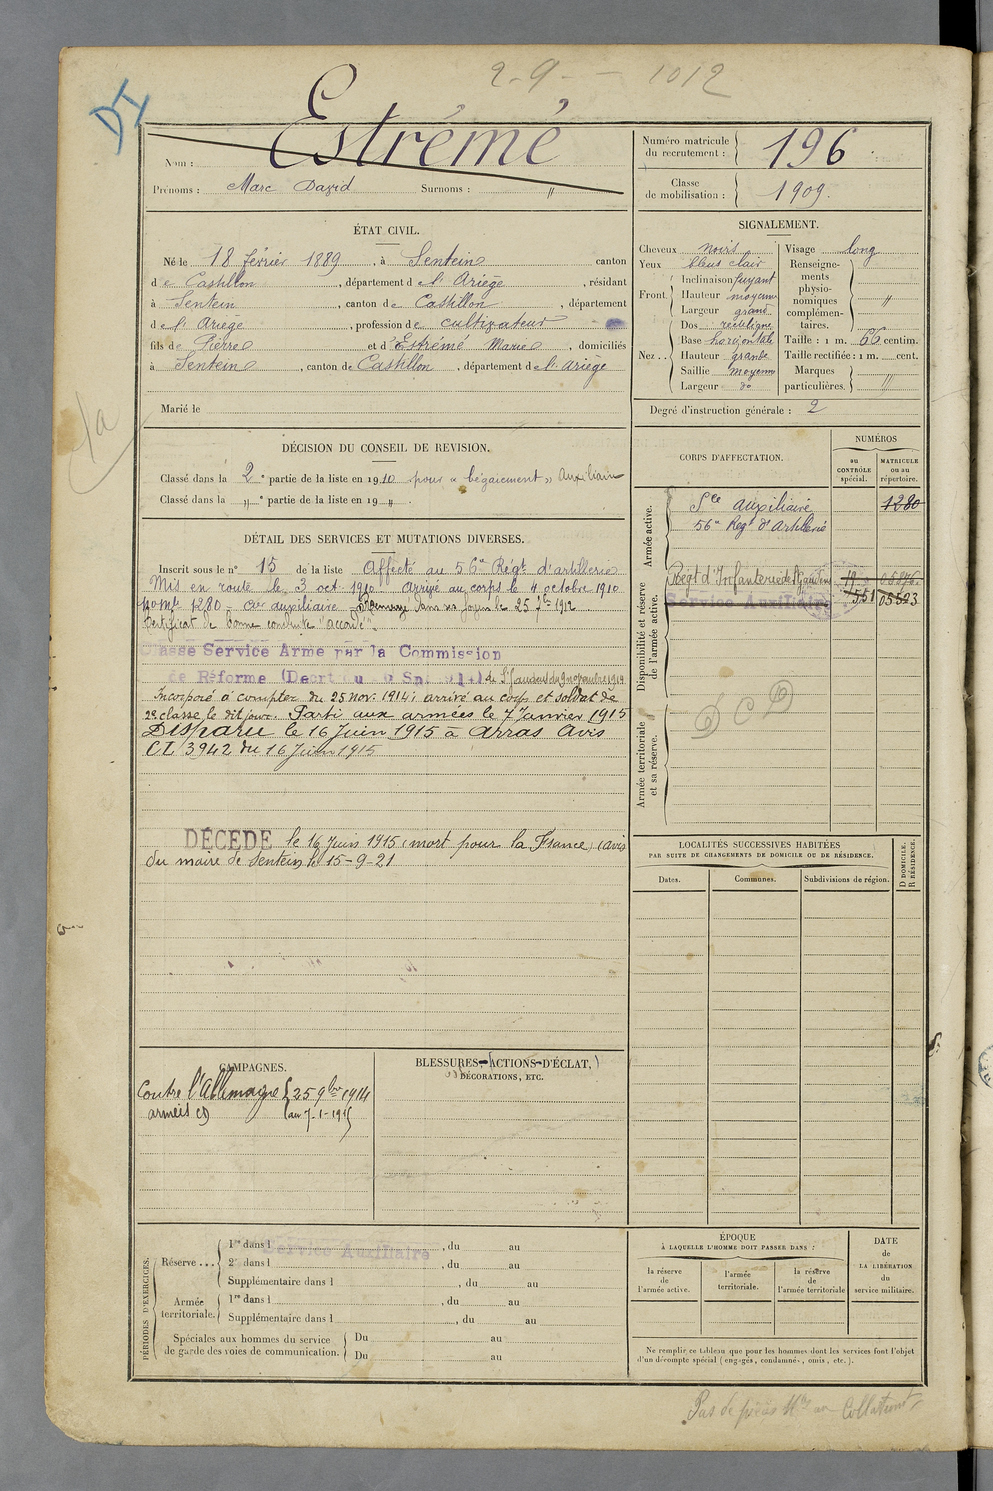 2-9- - 1012
DI
Estrémé
Nom :
Prénoms : Marc David Surnoms : "
Numéro matricule du recrutement : 196
Classe de mobilisation : 1909.
ÉTAT CIVIL.
Né le 18 février 1889, à Sentein canton
de Castillon, département de l'Ariège, résidant
à Sentein, canton de Castillon, département
de l'Ariège, profession de cultivateur
fils de Pierre et d'Estrémé Marie, domiciliés
à Sentein, canton de Castillon, département de l'Ariège
Marié le
SIGNALEMENT.
Cheveux noirs
Yeux bleus clair
Front. Inclinaison fuyant
Hauteur moyenne
Largeur grand
Nez. Dos rectiligne
Base horizontale
Hauteur grande
Saillie moyenne
Largeur do
Visage long
Renseignements physionomiques complémentaires. "
Taille : 1 m. 66 centim.
Taille rectifiée : 1 m. cent.
Marques particulières. "
Degré d'instruction générale : 2
DÉCISION DU CONSEIL DE REVISION.
Classé dans la 2e partie de la liste en 1910 pour « bégaiement » Auxiliaire
Classé dans la " e partie de la liste en 19 " .
DÉTAIL DES SERVICES ET MUTATIONS DIVERSES.
Inscrit sous le n° 15 de la liste Affecté au 56e Régt d'artillerie
Mis en route le 3 oct. 1910. Arrivé au corps le 4 octobre 1910
No Mle 1280 - auxiliaire dans ses foyers le 25 7bre 1912
Certificat de bonne conduite "accordé".
Classé Service Armé par la Commission
de Réforme (Décret du Sept 1914) de St Gaudens du 9 novembre 1914
Incorporé à compter du 25 Nov. 1914; arrivé au corps et soldat de
2e classe le dit jour. Parti aux armées le 7 Janvier 1915
Disparu le 16 Juin 1915 à Arras Avis
CL 3942 du 16 Juin 1915
DÉCÉDÉ le 16 Juin 1915 (mort pour la France) (avis
du maire de Sentein le 15-9-21
CORPS D'AFFECTATION.
NUMÉROS
au CONTRÔLE spécial.
MATRICULE ou au répertoire.
Armée active.
Sce Auxiliaire 1280
56e Regt d'Artillerie
Disponibilité et réserve de l'armée active.
Régt d'Infanterie de St Gaudens
Service Auxiliaire 551 05523
Armée territoriale et sa réserve.
DCD
LOCALITÉS SUCCESSIVES HABITÉES
PAR SUITE DE CHANGEMENTS DE DOMICILE OU DE RÉSIDENCE.
Dates. Communes. Subdivisions de région. D DOMICILE. R RÉSIDENCE.
CAMPAGNES.
Contre l'Allemagne 25 9bre 1914
armées au 7-1-1915
BLESSURES, ACTIONS D'ÉCLAT,
DÉCORATIONS, ETC.
PÉRIODES D'EXERCICES.
Réserve ... 1re dans l Service Auxiliaire, du au
2e dans l , du au
Supplémentaire dans l , du au
Armée territoriale. 1re dans l , du au
Supplémentaire dans l , du au
Spéciales aux hommes du service de garde des voies de communication. Du au
Du au
ÉPOQUE
À LAQUELLE L'HOMME DOIT PASSER DANS :
la réserve de l'armée active.
l'armée territoriale.
la réserve de l'armée territoriale
DATE de LA LIBÉRATION du service militaire.
Ne remplir ce tableau que pour les hommes dont les services font l'objet
d'un décompte spécial (engagés, condamnés, omis, etc.).
Pas de pièces